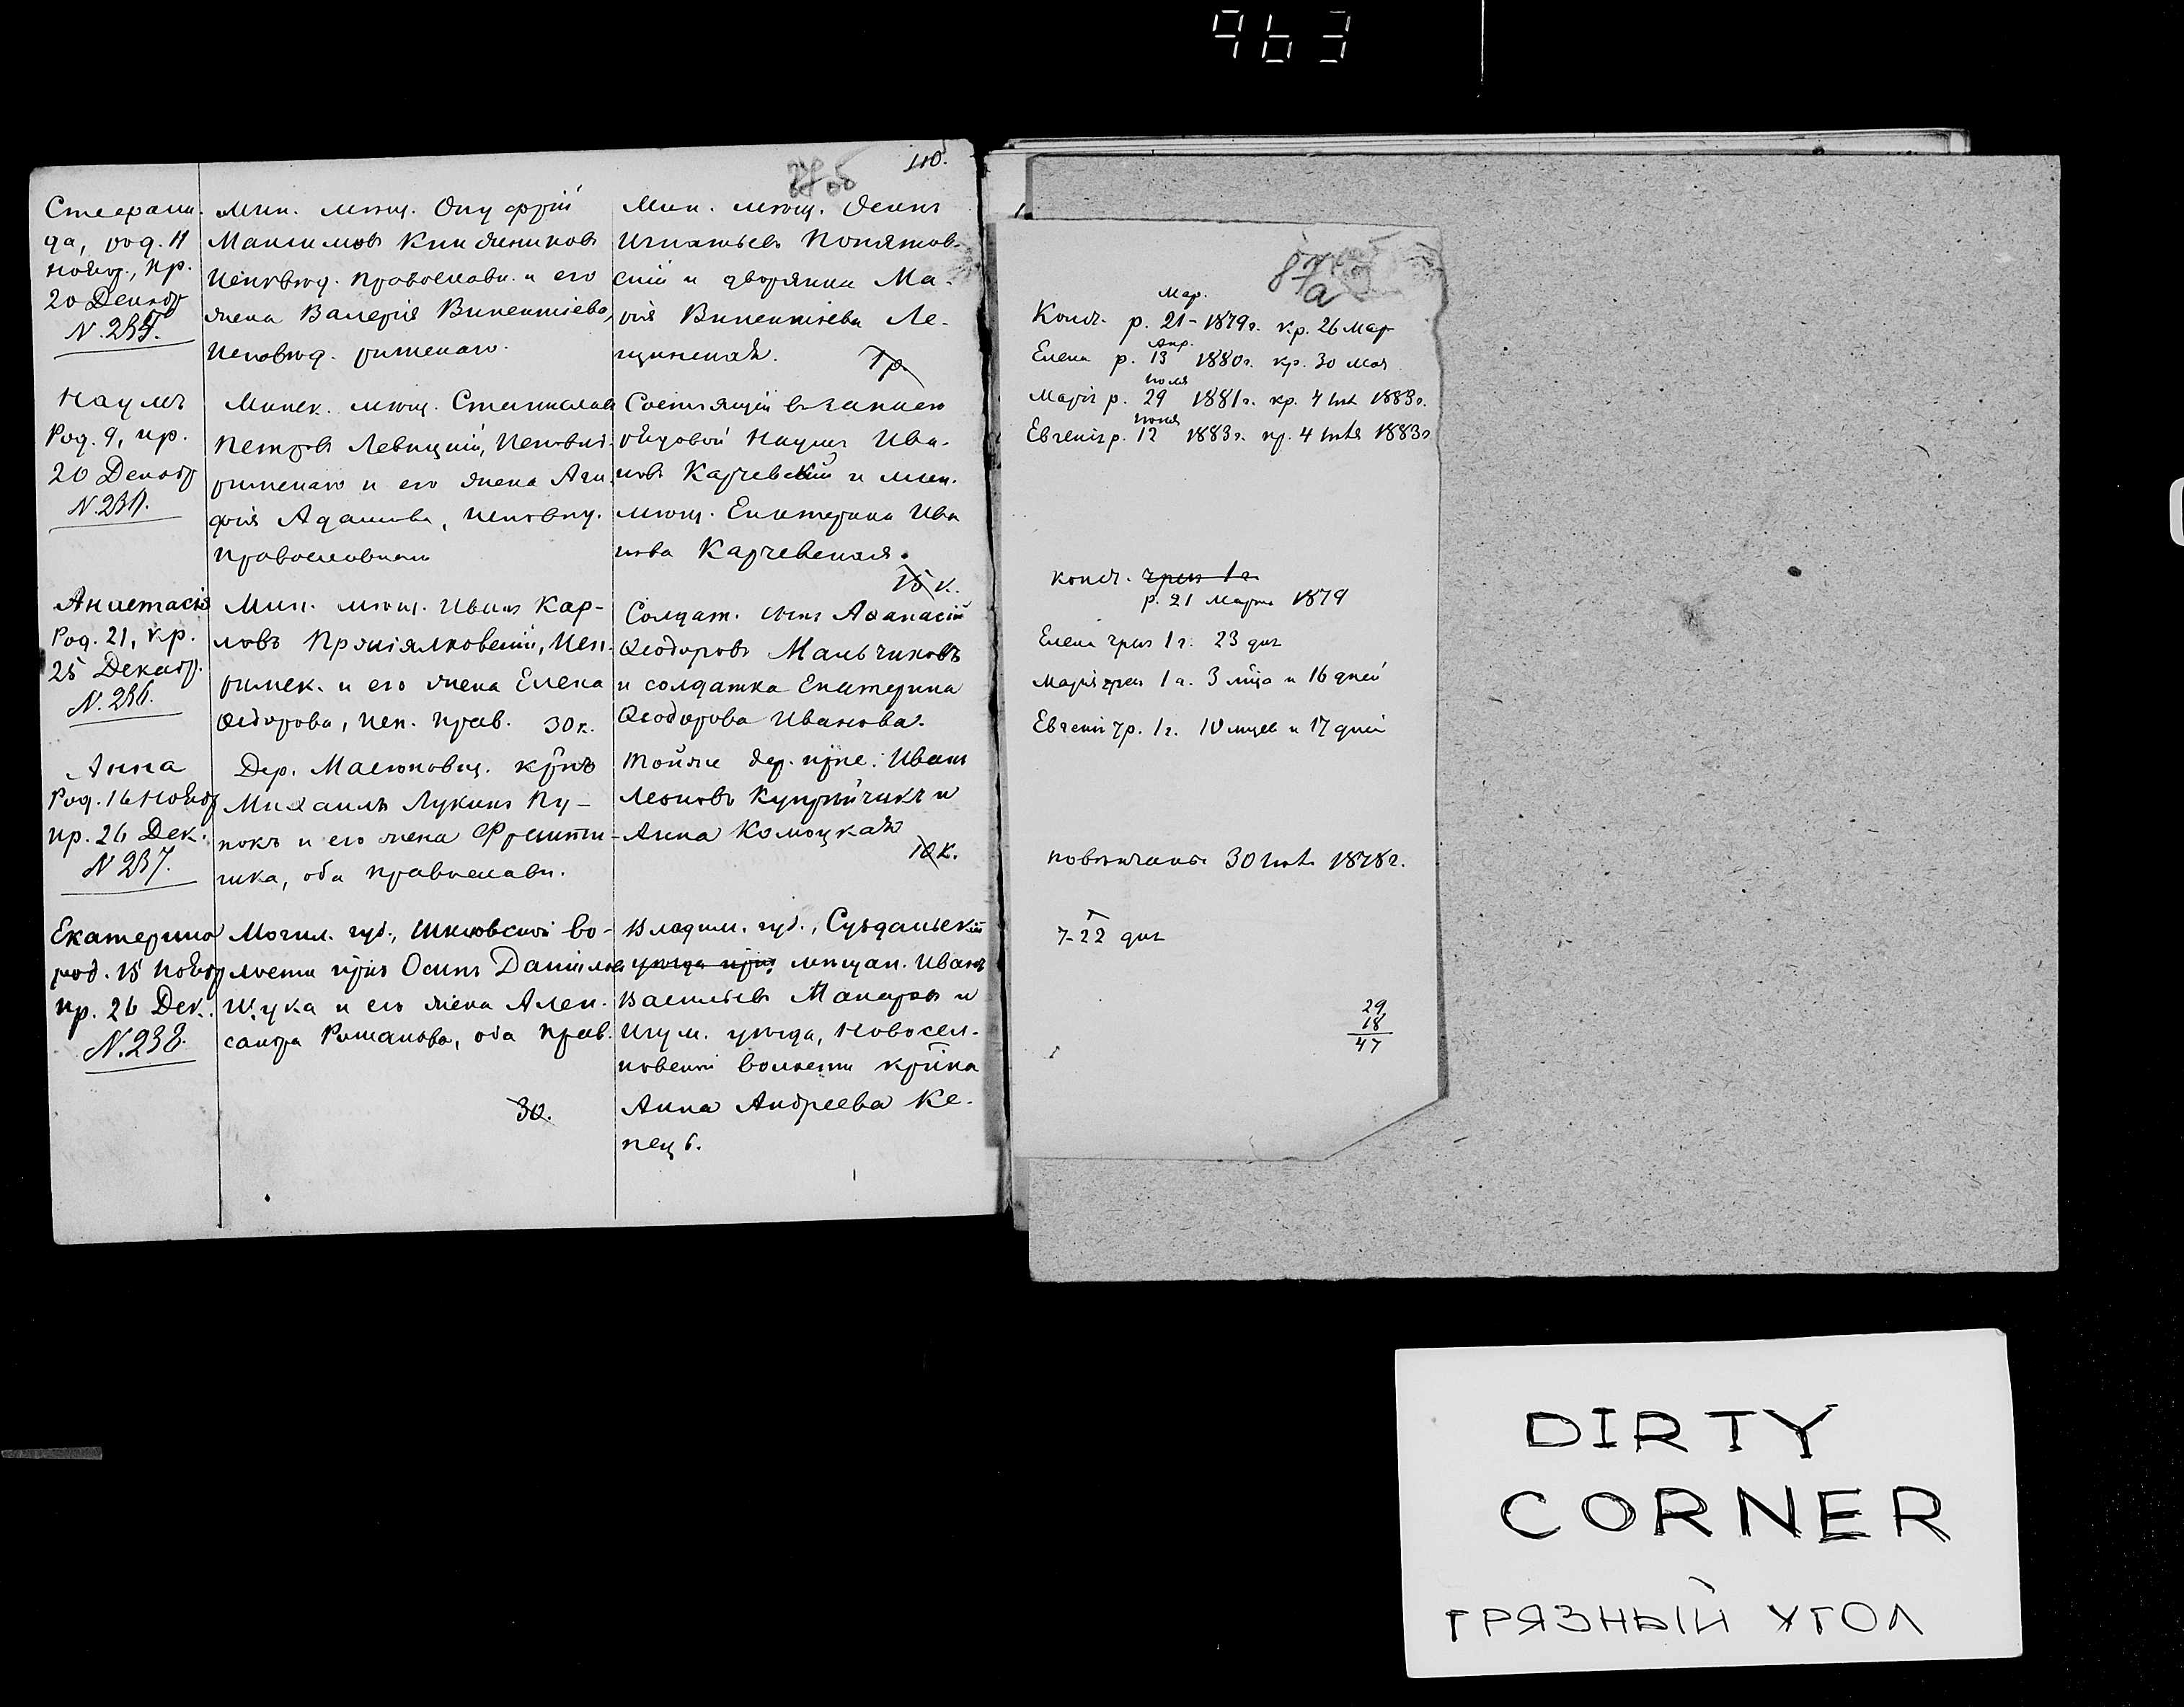 963
110.
Стефани-
да, род. 11
Ноябр., кр.
20 Декабр
N. 234.
Мин. мѣщ. Онуфрій
Максимовъ
исповѣд. православн. и его
жена Валерія Викентіева,
исповѣд. римскаго.
Мин. мѣщ. Осипъ
Игнатьевъ Понятов-
скій и дворянка Ма-
рія Викентіева Ле-
щинская.
1 р.
Наумъ
Род. 9, кр.
20 Декабр
Минск. мѣщ. Станиславъ
Петровъ Левицкій, исповѣд.
римскаго и его жена Ага-
фія Адамова, исповѣд.
православнаго
Состоящій въ запасѣ
рядовой Наумъ Ива-
новъ Карчевскій и мин.
мѣщ. Екатерина Ива
нова Карчевская.
15 к.
Анастасія
Род. 21, кр.
25 Декабр.
N. 236.
Мин. мѣщ. Иванъ Кар-
ловъ исп.
римск. и его жена Елена
Ѳедорова, исп. прав. 30 к.
Солдат. сынъ Аѳанасій
Ѳеодоровъ Мальчиковъ
и солдатка Екатерина
Ѳеодорова Иванова.
Анна
Род. 16 Ноябр
кр. 26 Дек.
N 237.
Дер. Масюковщ. крнъ
Михаилъ Лукинъ Пу-
покъ и его жена
оба православн.
Тойже дер. крне: Иванъ
Леоновъ Купрейчикъ и
Анна Комоцкая
10 к.
Екатерина
род. 15 Ноябр
кр. 26 Дек.
N. 238.
Могил. губ., Шкловской во-
лости крнъ Осипъ Даніиловъ
Щука и его жена Алек-
сандра Романова, оба прав.
30.
Владим. губ., Суздальскій
уѣзда крнъ мѣщан. Иванъ
Васильевъ Макаровъ и
Игум. уѣзда, Новосел-
ковской волости крнка
Анна Андреева Ке-
пецъ.
87
а
Мар.
Конст. р. 21 - 1879 г. кр. 26 Мар
Апр.
Елена р. 13 1880 г. кр. 30 Мая
Іюля
Марія р. 29 1881 г. кр. 4 1883 г.
Іюня
Евгеній р. 12 1883 г. кр. 4 1883 г
Конст. чрез 1 г.
р. 21 Марта 1879
Елена чрез 1 г. 23 дня
Марія чрез 1 г. 3 мца и 16 дней
Евгеній чр. 1 г. 10 мцев и 17 дней
повѣнчаны 30 1878 г.
7-22 дня
29
18
47
DIRTY
CORNER
ГРЯЗНЫЙ УГОЛ